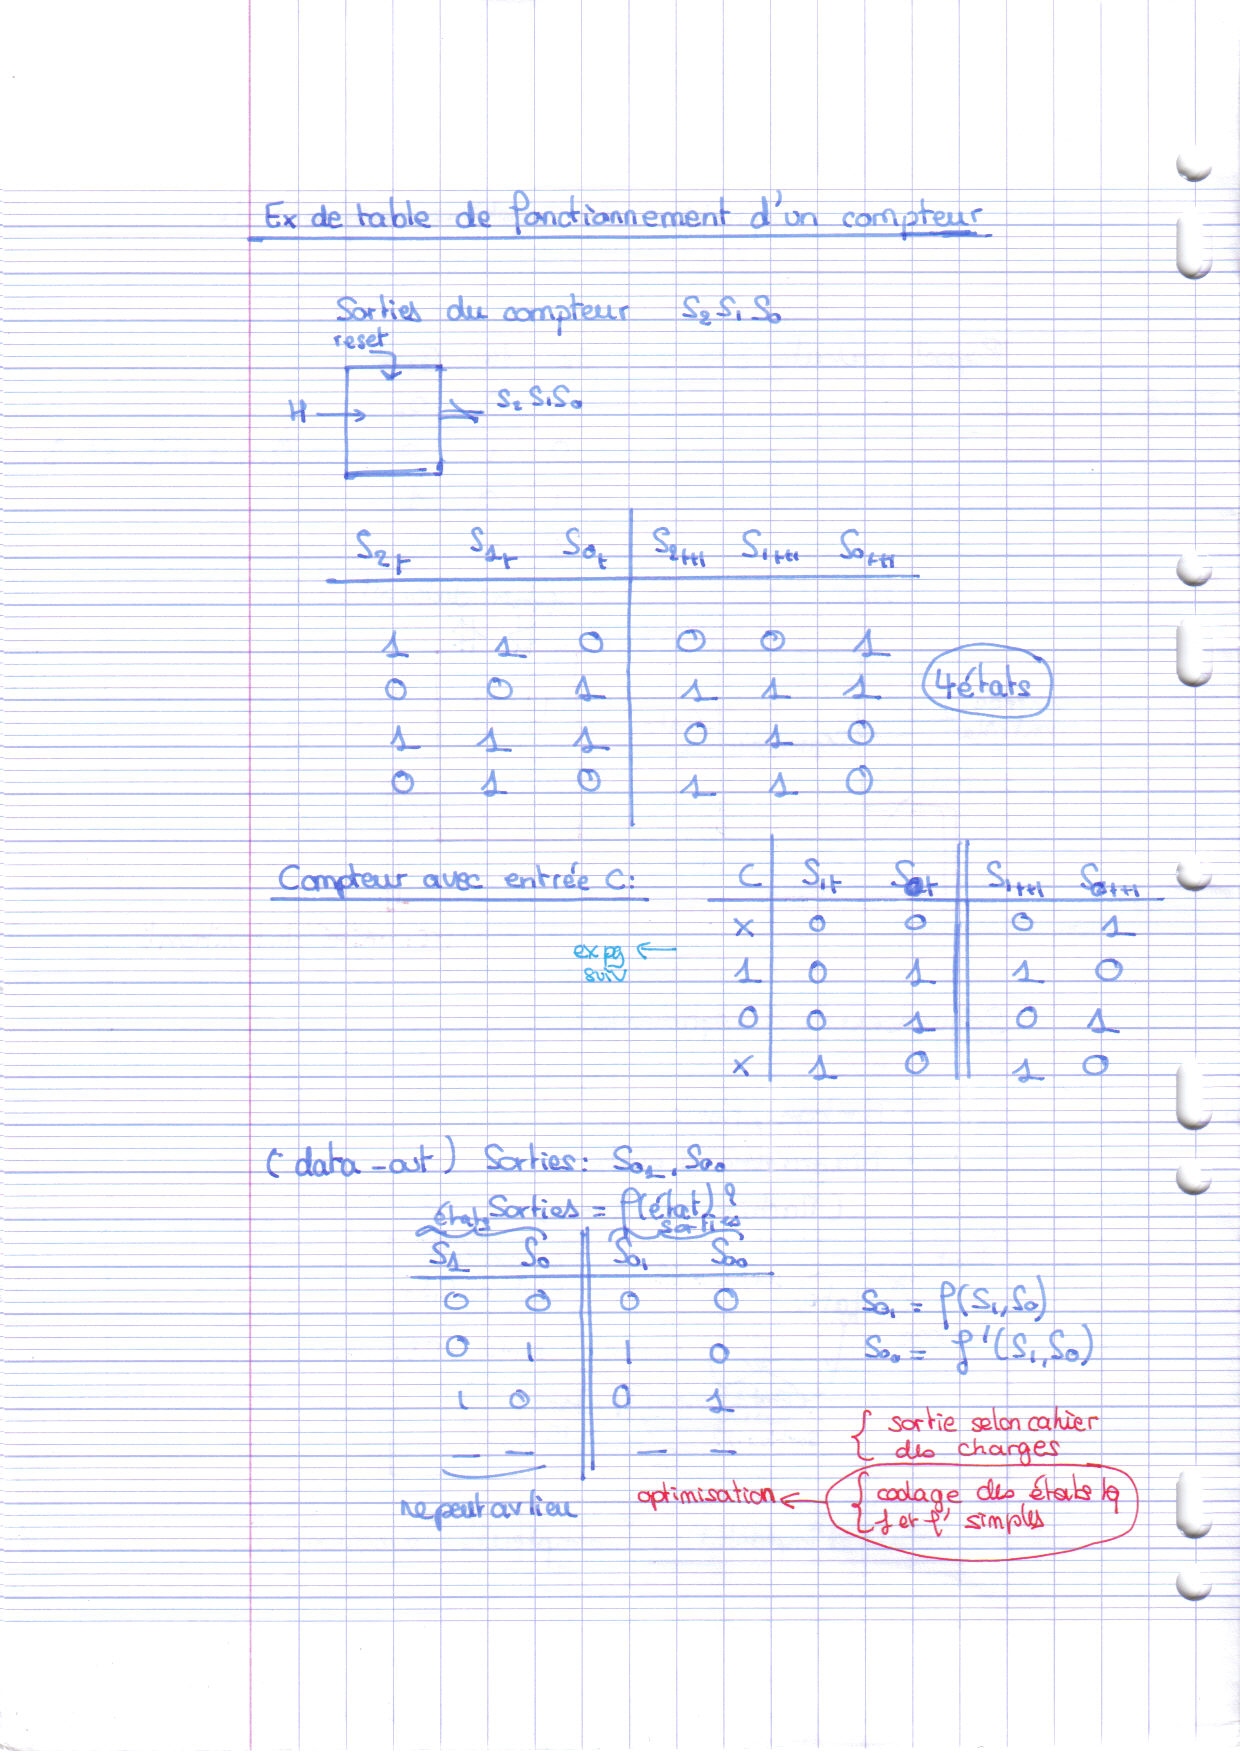 Ex de table de fonctionnement d'un compteur
Sorties du compteur S2 S1 S0
reset
H
S2 S1 S0
S2t S1t S0t S2t+1 S1t+1 S0t+1
1 1 0 0 0 1
0 0 1 1 1 1
4 états
1 1 1 0 1 0
0 1 0 1 1 0
Compteur avec entrée C:
C S1t S0t S1t+1 S0t+1
X 0 0 0 1
ex pg ←
suiv
1 0 1 1 0
0 0 1 0 1
X 1 0 1 0
(data-out) Sorties: So1, So0
Sorties = f(état)?
états sorties
S1 S0 So1 So0
0 0 0 0
0 1 1 0
1 0 0 1
— — — —
So1 = f(S1,S0)
So0 = f'(S1,S0)
{ sortie selon cahier
des charges
optimisation ← { codage des états tq
f et f' simples
ne peut av lieu